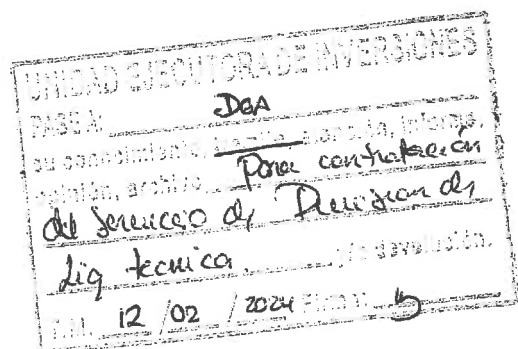 UNIDAD EJECUTORA DE INVERSIONES
PASE A: DGA
su conocimiento, atención, informe,
opinión, archivo, Para contratación
del servicio de de
Liq tecnica y/o devolución.
T.M. 12 / 02 / 2024 Firma: